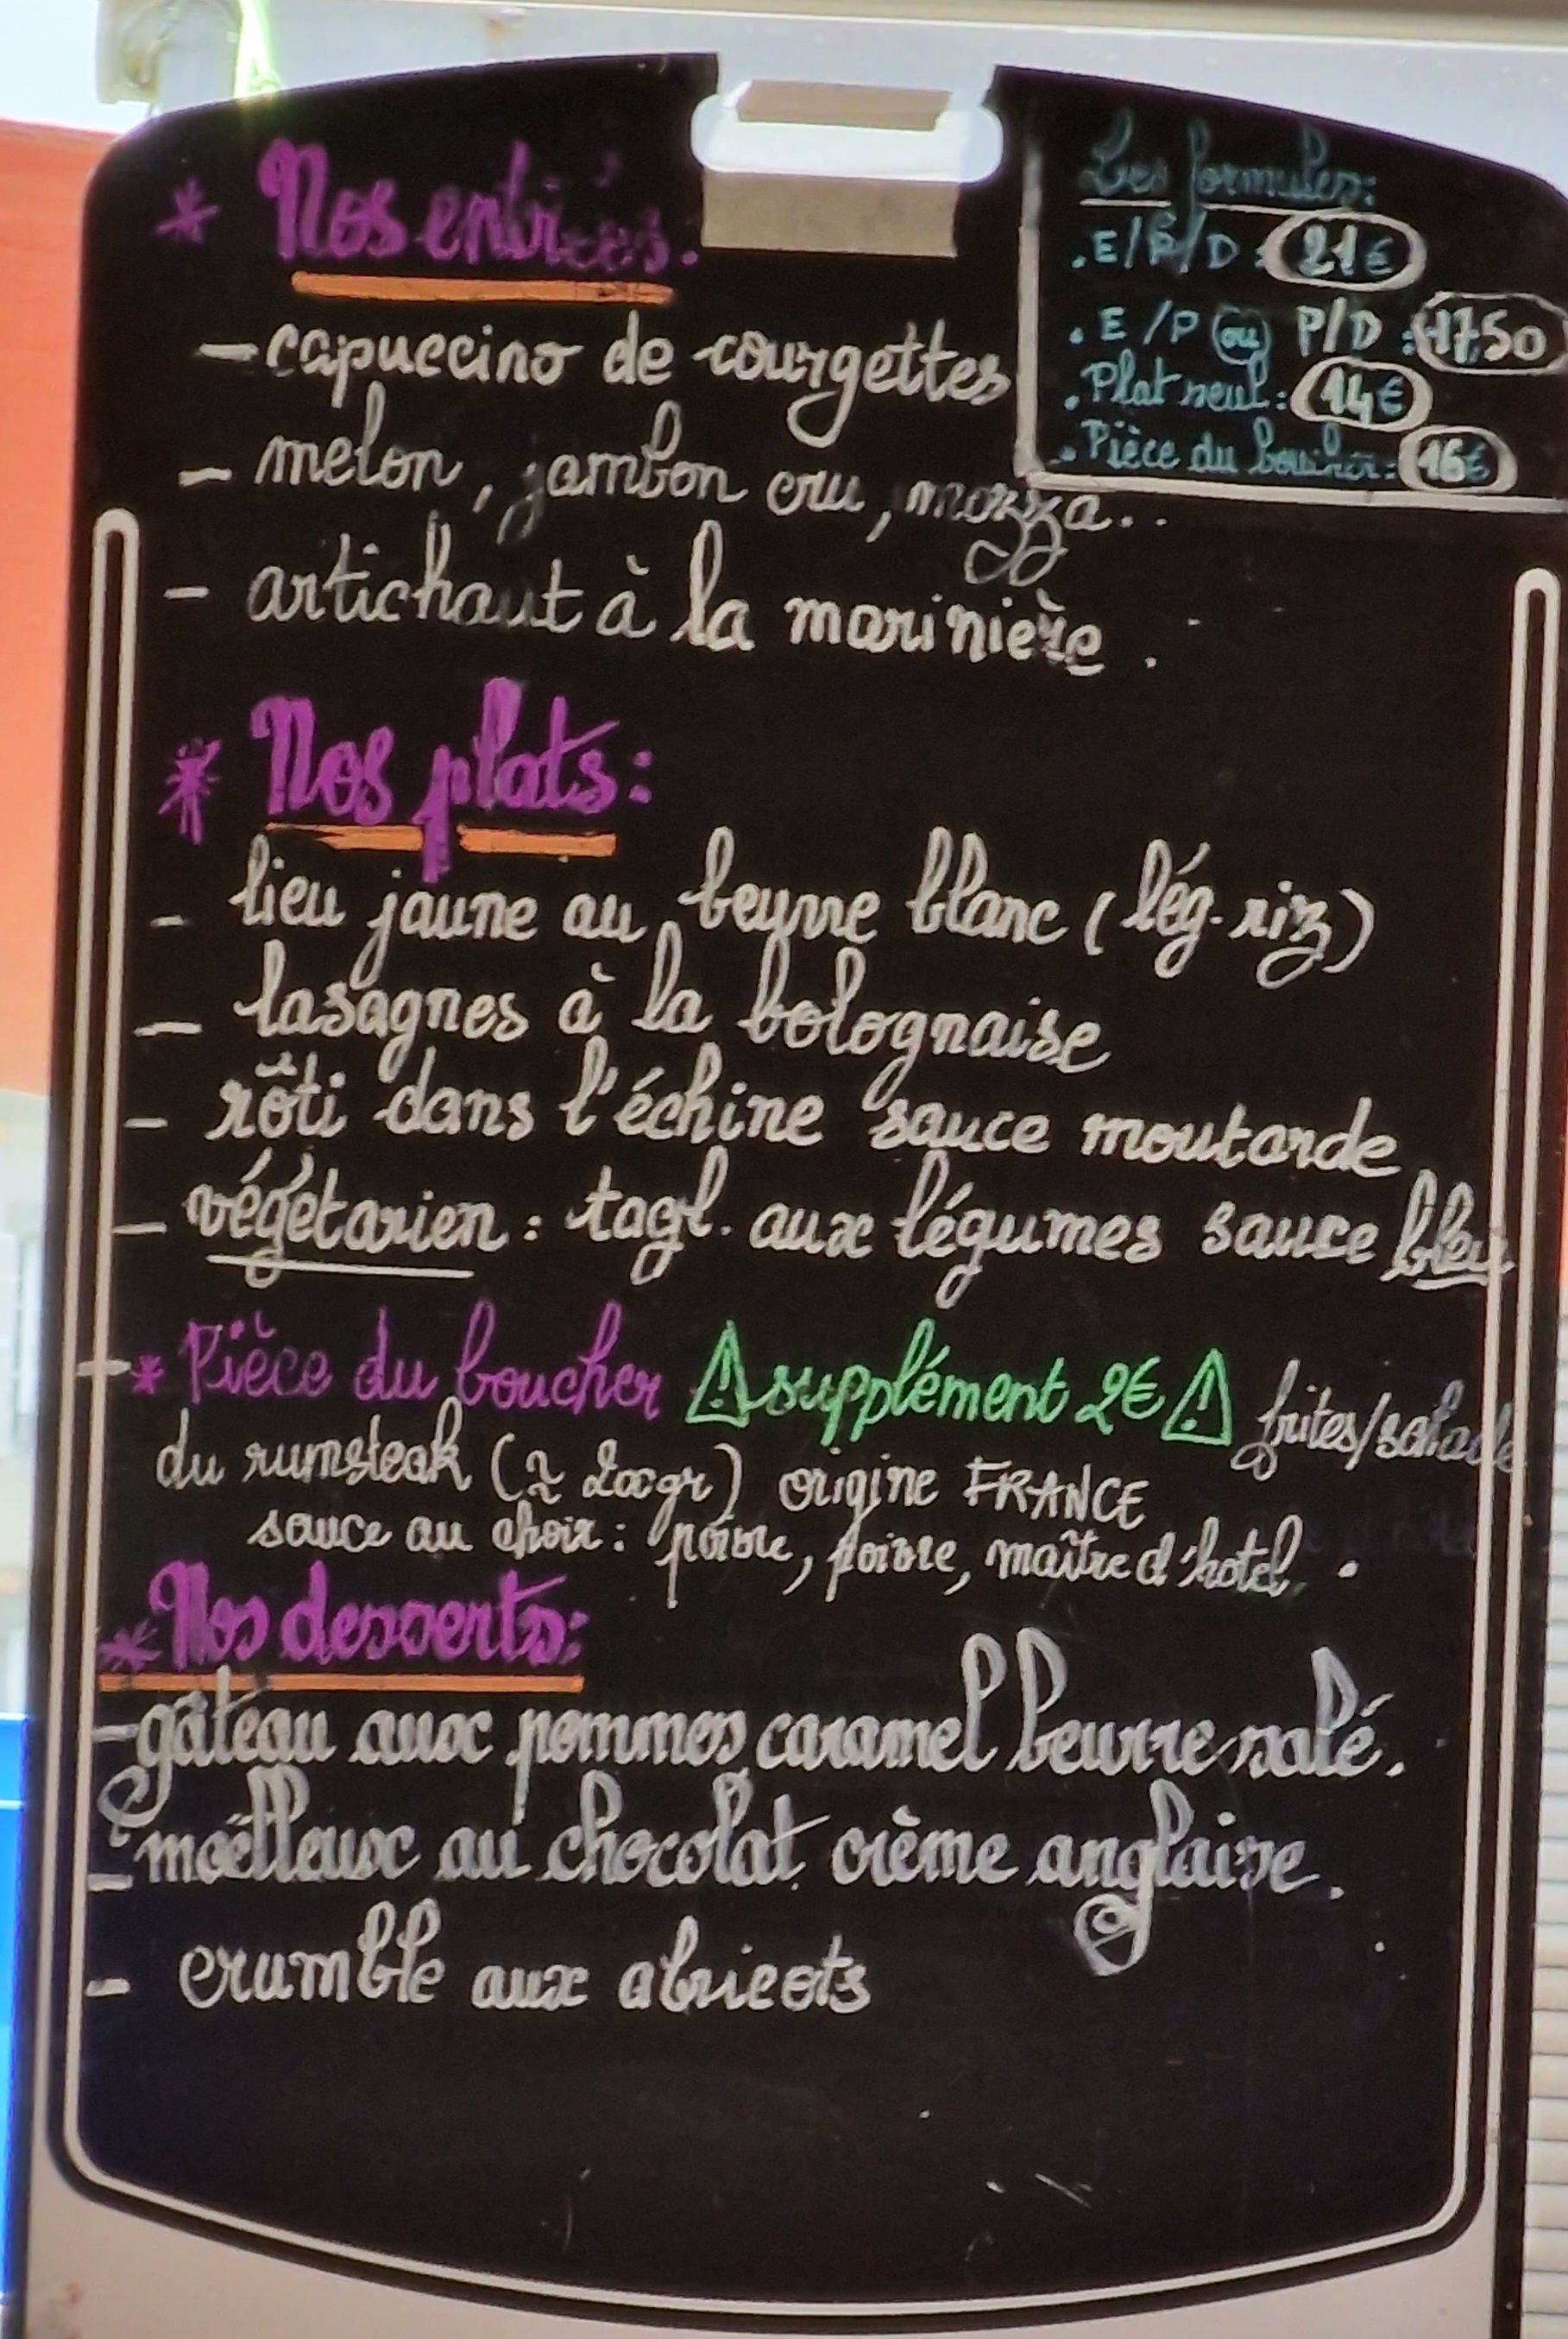 * Nos entrées.
- capuccino de courgettes
- melon, jambon cru, mozza..
- artichaut à la marinière.
Les formules:
. E/P/D : 21€
. E/P ou P/D : 17,50
. Plat seul : 14€
. Pièce du boucher : 16€
* Nos plats:
- lieu jaune au beurre blanc (lég-riz)
- lasagnes à la bolognaise
- rôti dans l'échine sauce moutarde
- végétarien : tagl. aux légumes sauce bleu
* Pièce du boucher ⚠ supplément 2€ ⚠ frites/salade
du rumsteak (≈ 200gr) origine FRANCE
sauce au choix : poivre, poivre, maître d'hotel.
* Nos desserts:
- gâteau aux pommes, caramel beurre salé.
- moëlleux au chocolat crème anglaise.
- crumble aux abricots